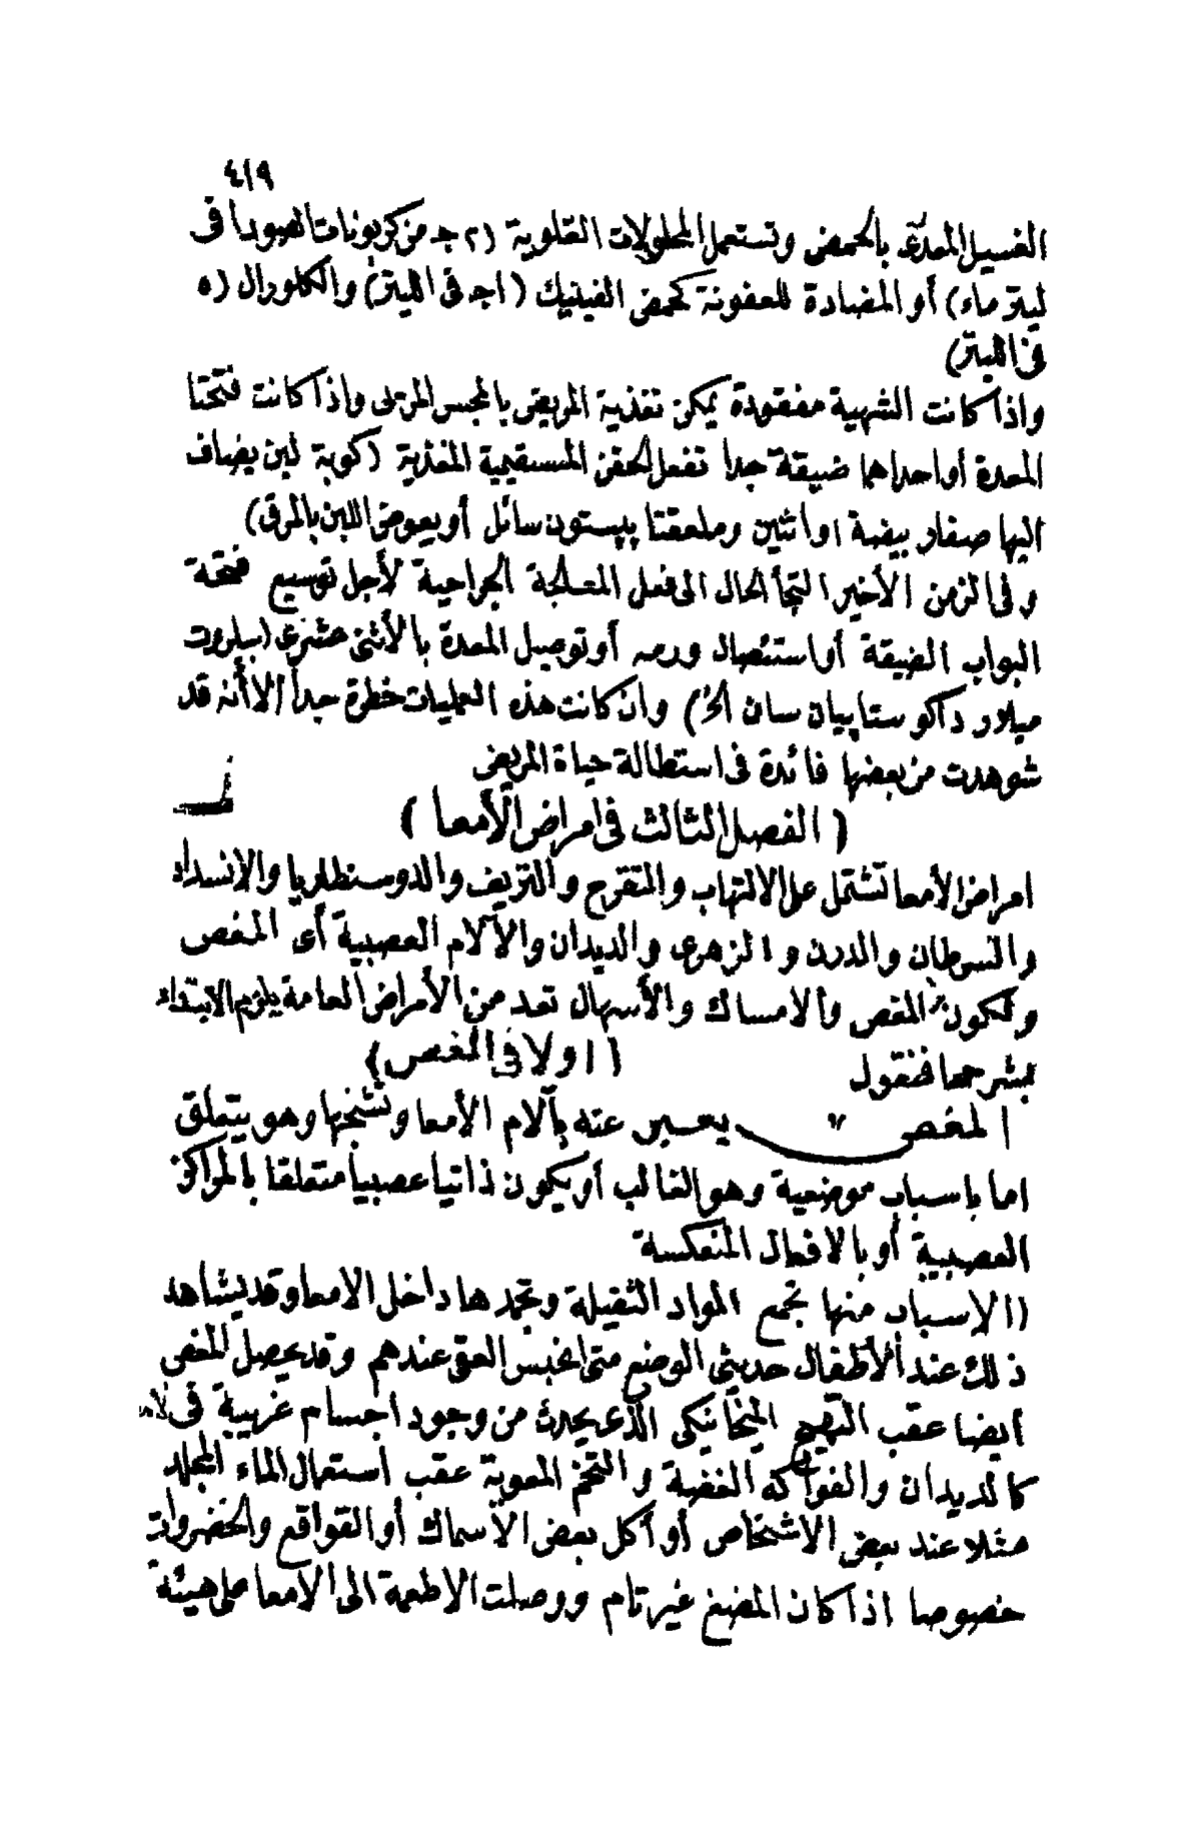 ٤١٩
الغسيل المعدى بالحمض وتستعمل المحلولات القلوية (٢ ج من كربونات الصودا فى
ليتر ماء) أو المضادة للعفونة كحمض الفينيك (١ج فى الليتر) والكلورال (٥
فى الليتر)
واذا كانت الشهية مفقودة يمكن تغذية المريض بالمجس المريئى واذا كانت فتحتا
المعدة أو احداهما ضيقة جدا تفعل الحقن المستقيمية المغذية (كوبة لبن يضاف
اليها صفار بيضة اواثنين وملعقتا پپستون سائل أو يعوض اللبن بالمرق)
وفى الزمن الأخير التجأ الحال الى فعل المعالجة الجراحية لأجل توسيع فتحة
البواب الضيقة أو استئصال ورمه أو توصيل المعدة بالأثنى عشرى (بيلروت
ميلار داكوستا پيان سان الخ) وان كانت هذه العمليات خطرة جداً الا أنه قد
شوهدت من بعضها فائدة فى استطالة حياة المريض
(الفصل الثالث فى امراض الأمعا)
امراض الأمعا تشتمل على الالتهاب والتقرح والنزيف والدوسنطاريا والانسداد
والسرطان والدرن والزهرى والديدان والآلام العصبية أى المغص
ولكون المغص والامساك والأسهال تعد من الأمراض العامة يلزم الابتداء
بشرحها فنقول
(اولا فى المغص)
المغص يعبر عنه بآلام الأمعا وتشنجها وهو يتعلق
اما باسباب موضعية وهو الغالب أو يكون ذاتيا عصبياً متعلقا بالمراكز
العصبية أو بالافعال المنعكسة
(الاسباب منها تجمع المواد الثفيلة وتجمدها داخل الامعا وقد يشاهد
ذلك عند الأطفال حديثى الوضع متى انحبس العقى عندهم وقد يحصل المغص
ايضا عقب التهيج الميخانيكى الذى يحدث من وجود اجسام غريبة فى الامعا
كالديدان والفواكه الفضة والتخم المعوية عقب استعمال الماء المجلد
مثلا عند بعض الاشخاص أو أكل بعض الأسماك أو القواقع والخضروات
خصوصا اذا كان المضغ غير تام ووصلت الاطعمة الى الأمعا على هيئة